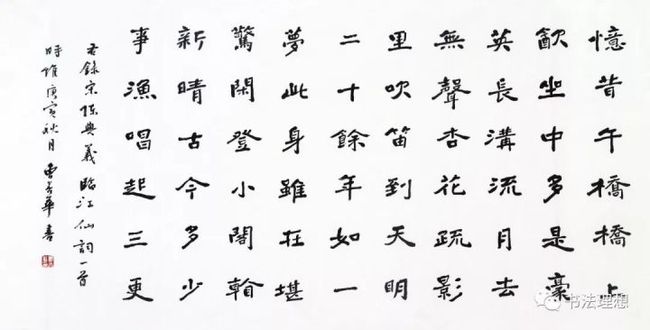 憶昔午橋橋上
飲坐中多是豪
英長溝流月去
無聲杏花疏影
里吹笛到天明
二十餘年如一
夢此身雖在堪
驚閑登小閣
新晴古今多少
事漁唱起三更
右錄宋陳與義臨江仙詞一首
時維庚寅秋月 華書
书法理想